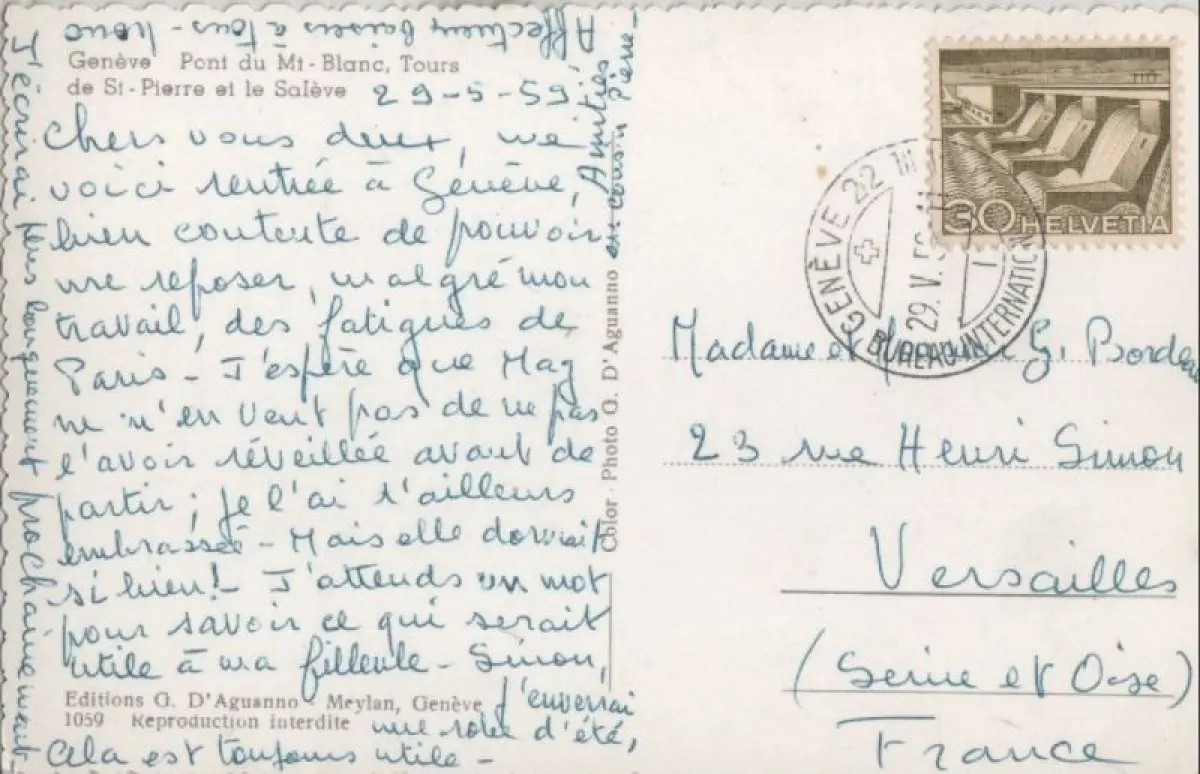 Genève Pont du Mt-Blanc, Tours
de St-Pierre et le Salève
29-5-59
Chers vous deux, me
voici rentrée à Genève,
bien contente de pouvoir
me reposer, malgré mon
travail, des fatigues de
Paris - J'espère que Mag
ne m'en veut pas de ne pas
l'avoir réveillée avant de
partir ; je l'ai d'ailleurs
embrassée - Mais elle dormait
si bien! - J'attends un mot
pour savoir ce qui serait
utile à ma filleule - Sinon,
j'enverrai
une robe d'été,
cela est toujours utile -
J'écrirai plus longuement prochainement
Affectueux baisers à tous -
Amitiés
au cousin Pierre -
Editions G. D'Aguanno - Meylan, Genève
1059 Reproduction interdite
Color - Photo O. D'Aguanno
GENÈVE 22
29.V.59
BUREAU INTERNATION
30 HELVETIA
Madame et G. Bordeau
23 rue Henri Simon
Versailles
(Seine et Oise)
France